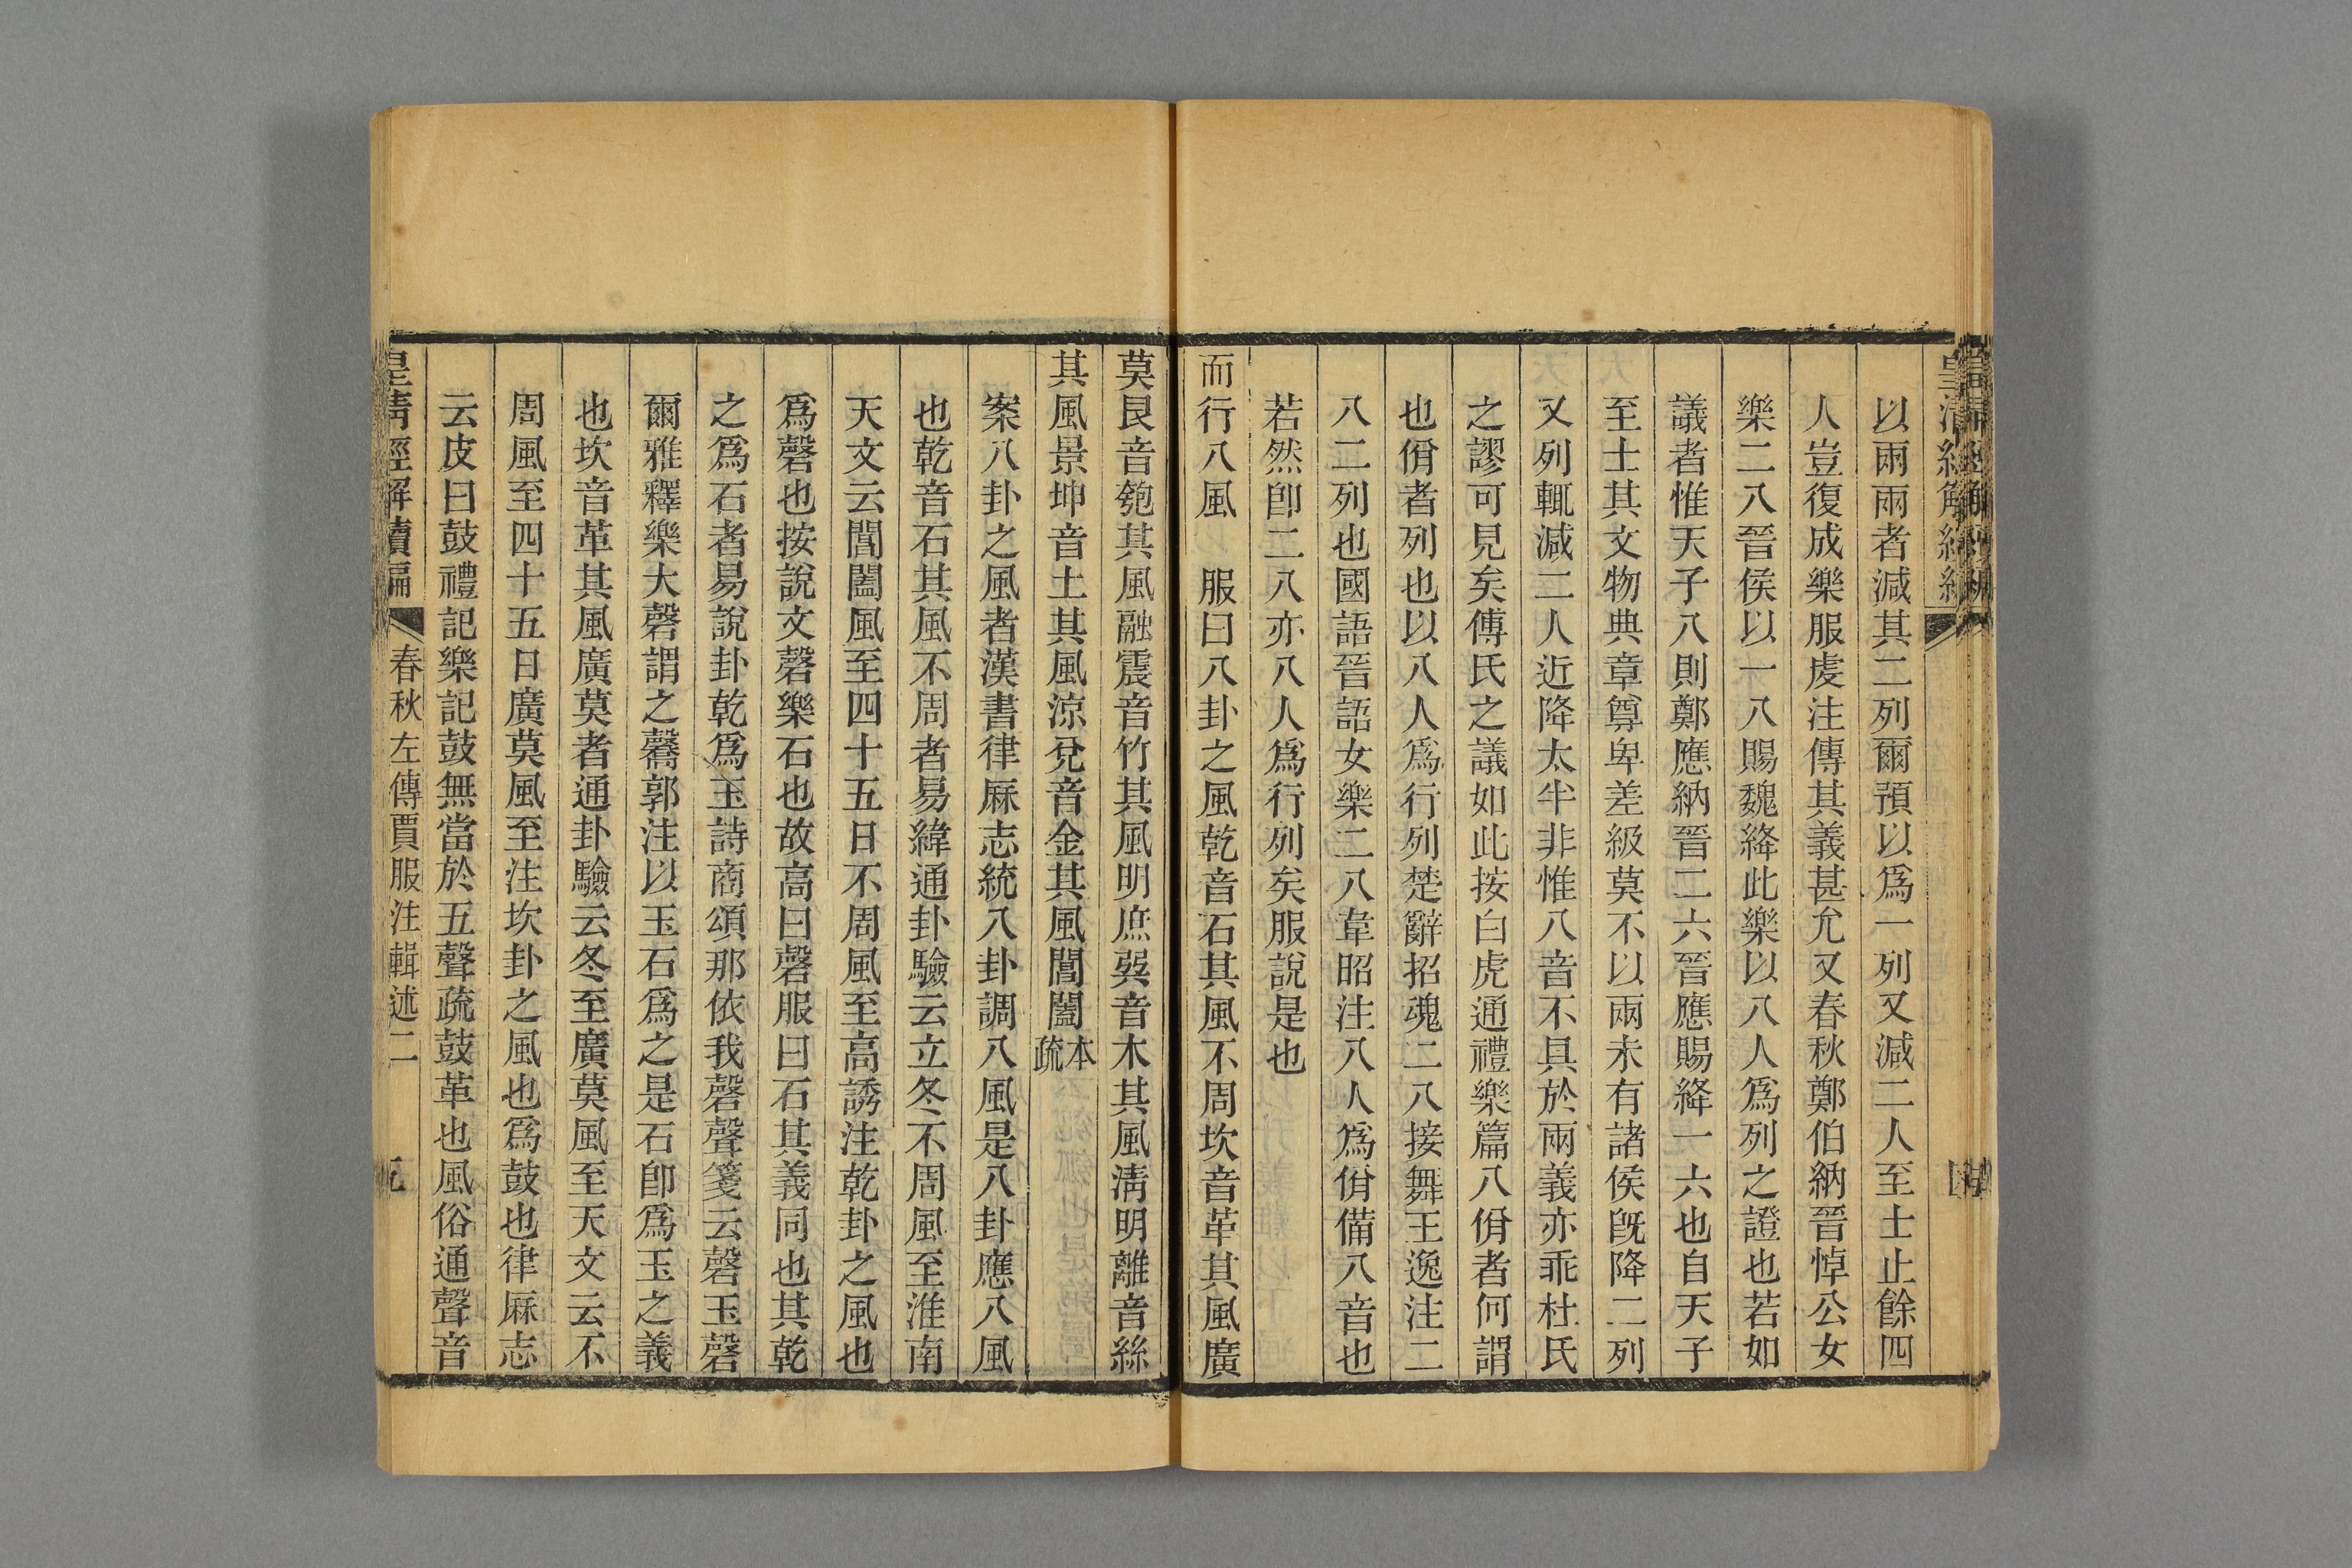 以兩兩者減其二列爾預以爲一列又減二人至士止餘四
人豈復成樂服虔注傳其義甚允又春秋鄭伯納晉悼公女
樂二八晉侯以一八賜魏絳此樂以八人爲列之證也若如
議者惟天子八則鄭應納晉二六晉應賜絳一六也自天子
至士其文物典章尊卑差級莫不以兩未有諸侯旣降二列
又列輒減二人近降太半非惟八音不具於兩義亦乖杜氏
之謬可見矣傅氏之議如此按白虎通禮樂篇八佾者何謂
也佾者列也以八人爲行列楚辭招魂二八接舞王逸注二
八二列也國語晉語女樂二八韋昭注八人爲佾備八音也
若然卽二八亦八人爲行列矣服說是也
而行八風 服曰八卦之風乾音石其風不周坎音革其風廣
莫艮音匏其風融震音竹其風明庶巽音木其風淸明離音絲
其風景坤音土其風涼兌音金其風閶闔本疏
案八卦之風者漢書律厤志統八卦調八風是八卦應八風
也乾音石其風不周者易緯通卦驗云立冬不周風至淮南
天文云閶闔風至四十五日不周風至高誘注乾卦之風也
爲磬也按說文磬樂石也故高曰磬服曰石其義同也其乾
之爲石者易說卦乾爲玉詩商頌那依我磬聲箋云磬玉磬
爾雅釋樂大磬謂之毊郭注以玉石爲之是石卽爲玉之義
也坎音革其風廣莫者通卦驗云冬至廣莫風至天文云不
周風至四十五日廣莫風至注坎卦之風也爲鼓也律厤志
云皮曰鼓禮記樂記鼓無當於五聲疏鼓革也風俗通聲音
皇淸經解續編 春秋左傳賈服注輯述二